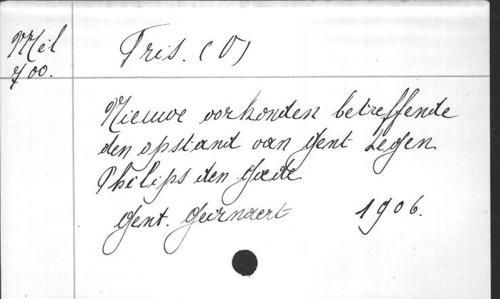 Mél
700.
Fris. (V)
Nieuwe oorkonden betreffende
den opstand van Gent tegen
Philips den Goede
Gent. Geirnaert 1906.